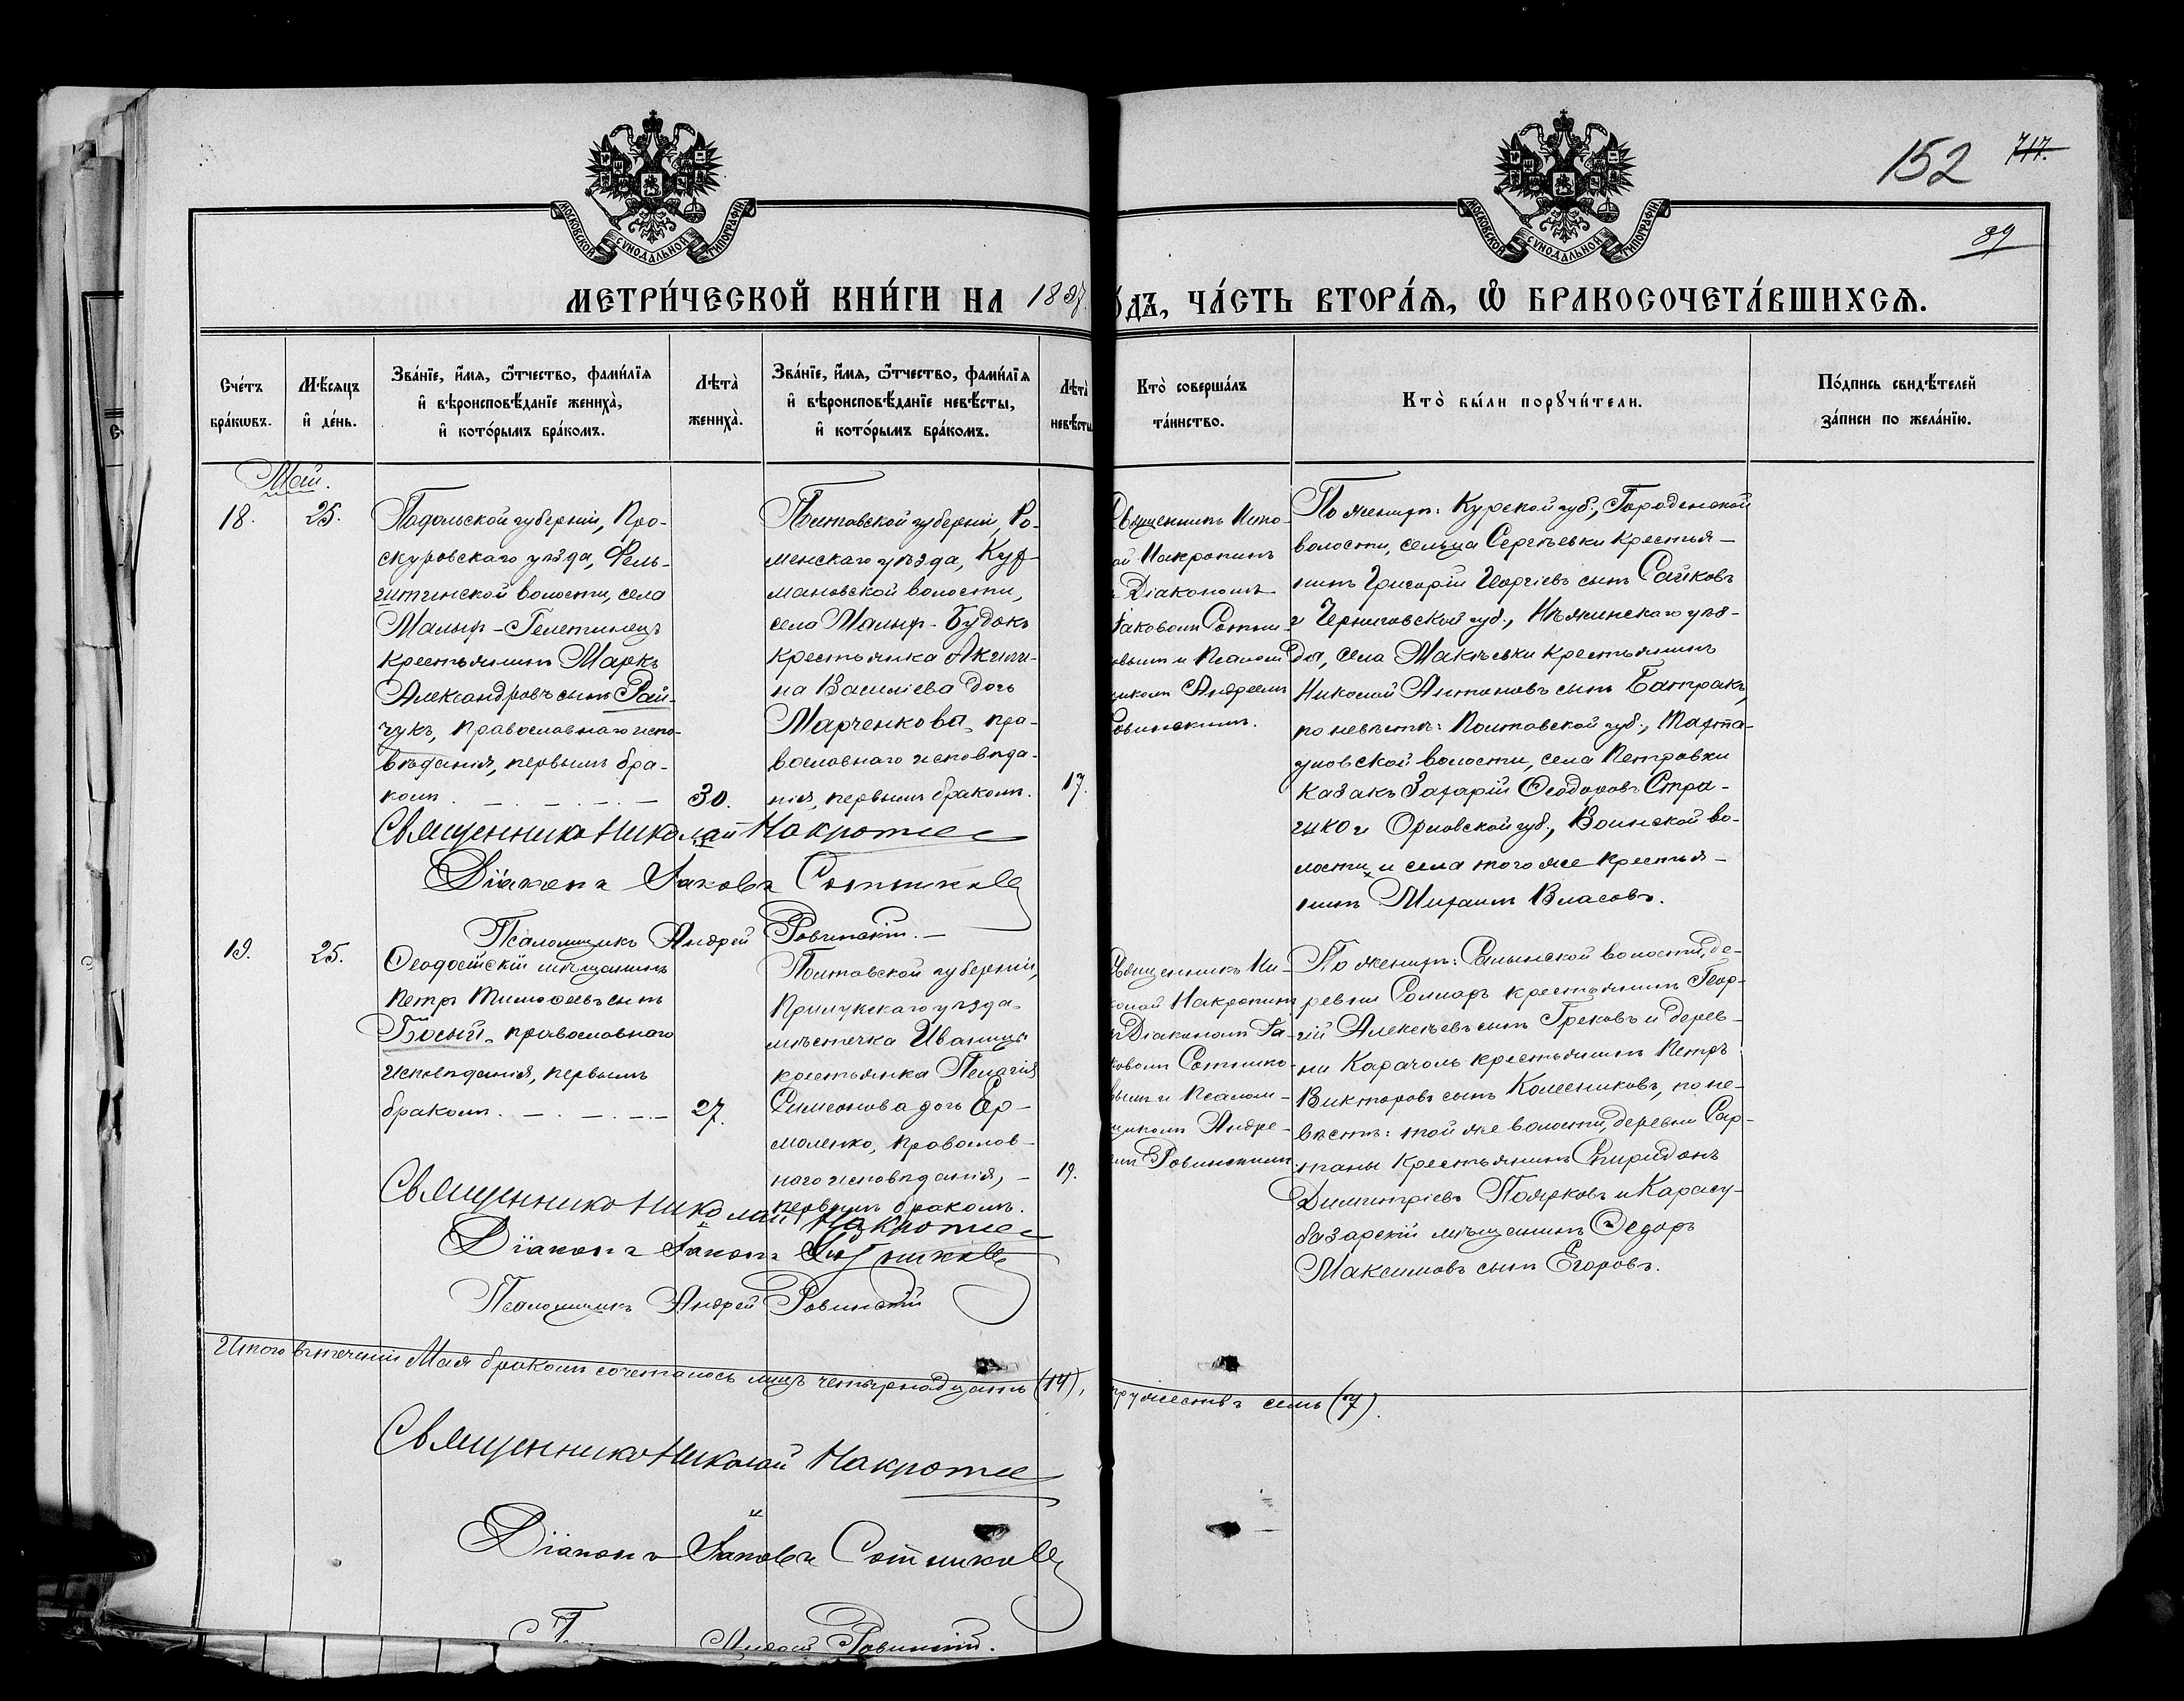 152 717.
89
МОСКОВСКОЙ СѴНОДАЛЬНОЙ ТИПОГРАФІИ
МОСКОВСКОЙ СѴНОДАЛЬНОЙ ТИПОГРАФІИ
МЕТРИ́ЧЕСКОЙ КНИ́ГИ НА 1897
О́ДЪ, ЧА́СТЬ ВТОРА́Я, Ѡ҆ БРАКОСОЧЕТА́ВШИХСЯ.
Сче́тъ
бра́кѡвъ.
Мѣ́сяцъ
и҆ де́нь.
Зва́нїе, и҆́мя, ѻ҆́тчество, фами́лїя
и҆ вѣроисповѣ́данїе жениха̀,
и҆ кото́рымъ бра́комъ.
Лѣта̀
жениха̀.
Зва́нїе, и҆́мя, ѻ҆́тчество, фами́лїя
и҆ вѣроисповѣ́данїе невѣ́сты,
и҆ кото́рымъ бра́комъ.
Лѣта̀
невѣ́сты
Кто̀ соверша́лъ
та́инство.
Кто̀ бы́ли порꙋчи́тели.
По́дпись свидѣ́телей
за́писи по жела́нїю.
Май.
18.
25.
Подольской губерніи, Про-
скуровскаго уѣзда, Фель-
штинской волости, села
Малыхъ-Гелетинецъ
крестьянинъ Маркъ
Александровъ сынъ Рай-
чукъ, православнаго испо-
вѣданія, первымъ бра-
комъ.
30.
Полтавской губерніи, Ро-
менскаго уѣзда,
мановской волости,
села Малыхъ-Будокъ
крестьянка Акили-
на Василіева дочь
Марченкова, пра-
вославнаго исповѣда-
нія, первымъ бракомъ.
17.
Священникъ Нико-
ай Накропинъ
Діакономъ
Іаковомъ Сотни-
овымъ и Псалом
щикомъ Андреемъ
Ровинскимъ.
По женихѣ: Курской губ., Городенской
волости, сельца Сергѣевки крестья-
нинъ Григорій Георгіевъ сынъ Сайковъ
и Черниговской губ., Нѣжинскаго уѣз-
да, села Макѣевки крестьянинъ
Николай Антоновъ сынъ Батракъ,
по невѣстѣ: Полтавской губ.,
волости, села Петровки
казакъ Захарій Ѳеодоровъ Стра-
шко и Орловской губ., Воинской во-
лости, и села того же крестья-
нинъ Михаилъ Власовъ.
Священникъ Николай
Діаконъ Іаковъ Сотниковъ
Псаломщикъ Андрей Ровинскій.
19.
25.
Ѳеодосійскій мѣщанинъ
Петръ Тимоѳеевъ сынъ
Босый, православнаго
исповѣданія, первымъ
бракомъ.
27.
Полтавской губерніи,
Прилукскаго уѣзда,
мѣстечка Иваницы
крестьянка Пелагія
Симеонова дочь Ер-
моленко, православ-
наго исповѣданія,
первымъ бракомъ.
19.
Священникъ Ни-
олай Накропинъ
Діакономъ Іа-
ковомъ Сотнико-
вымъ и Псалом-
щикомъ Андре-
емъ Ровинскимъ.
По женихѣ: Салынской волости, де-
ревни крестьянинъ Геор-
гій Алексѣевъ сынъ Грековъ и дерев-
ни Карачоль крестьянинъ Петръ
Викторовъ сынъ Колесниковъ, по не-
вѣстѣ: той же волости, деревни Сар-
таны крестьянинъ Спиридонъ
Димитріевъ Поярковъ и Карасу-
базарскій мѣщанинъ Ѳедоръ
Максимовъ сынъ Егоровъ.
Священникъ Николай
Діаконъ Іаковъ Сотниковъ
Псаломщикъ Андрей Ровинскій
Итого въ теченіи Мая бракомъ сочеталось лицъ четырнадцать (14),
пружествъ семь (7).
Священникъ Николай
Діаконъ Іаковъ Сотниковъ
Андрей Ровинскій.